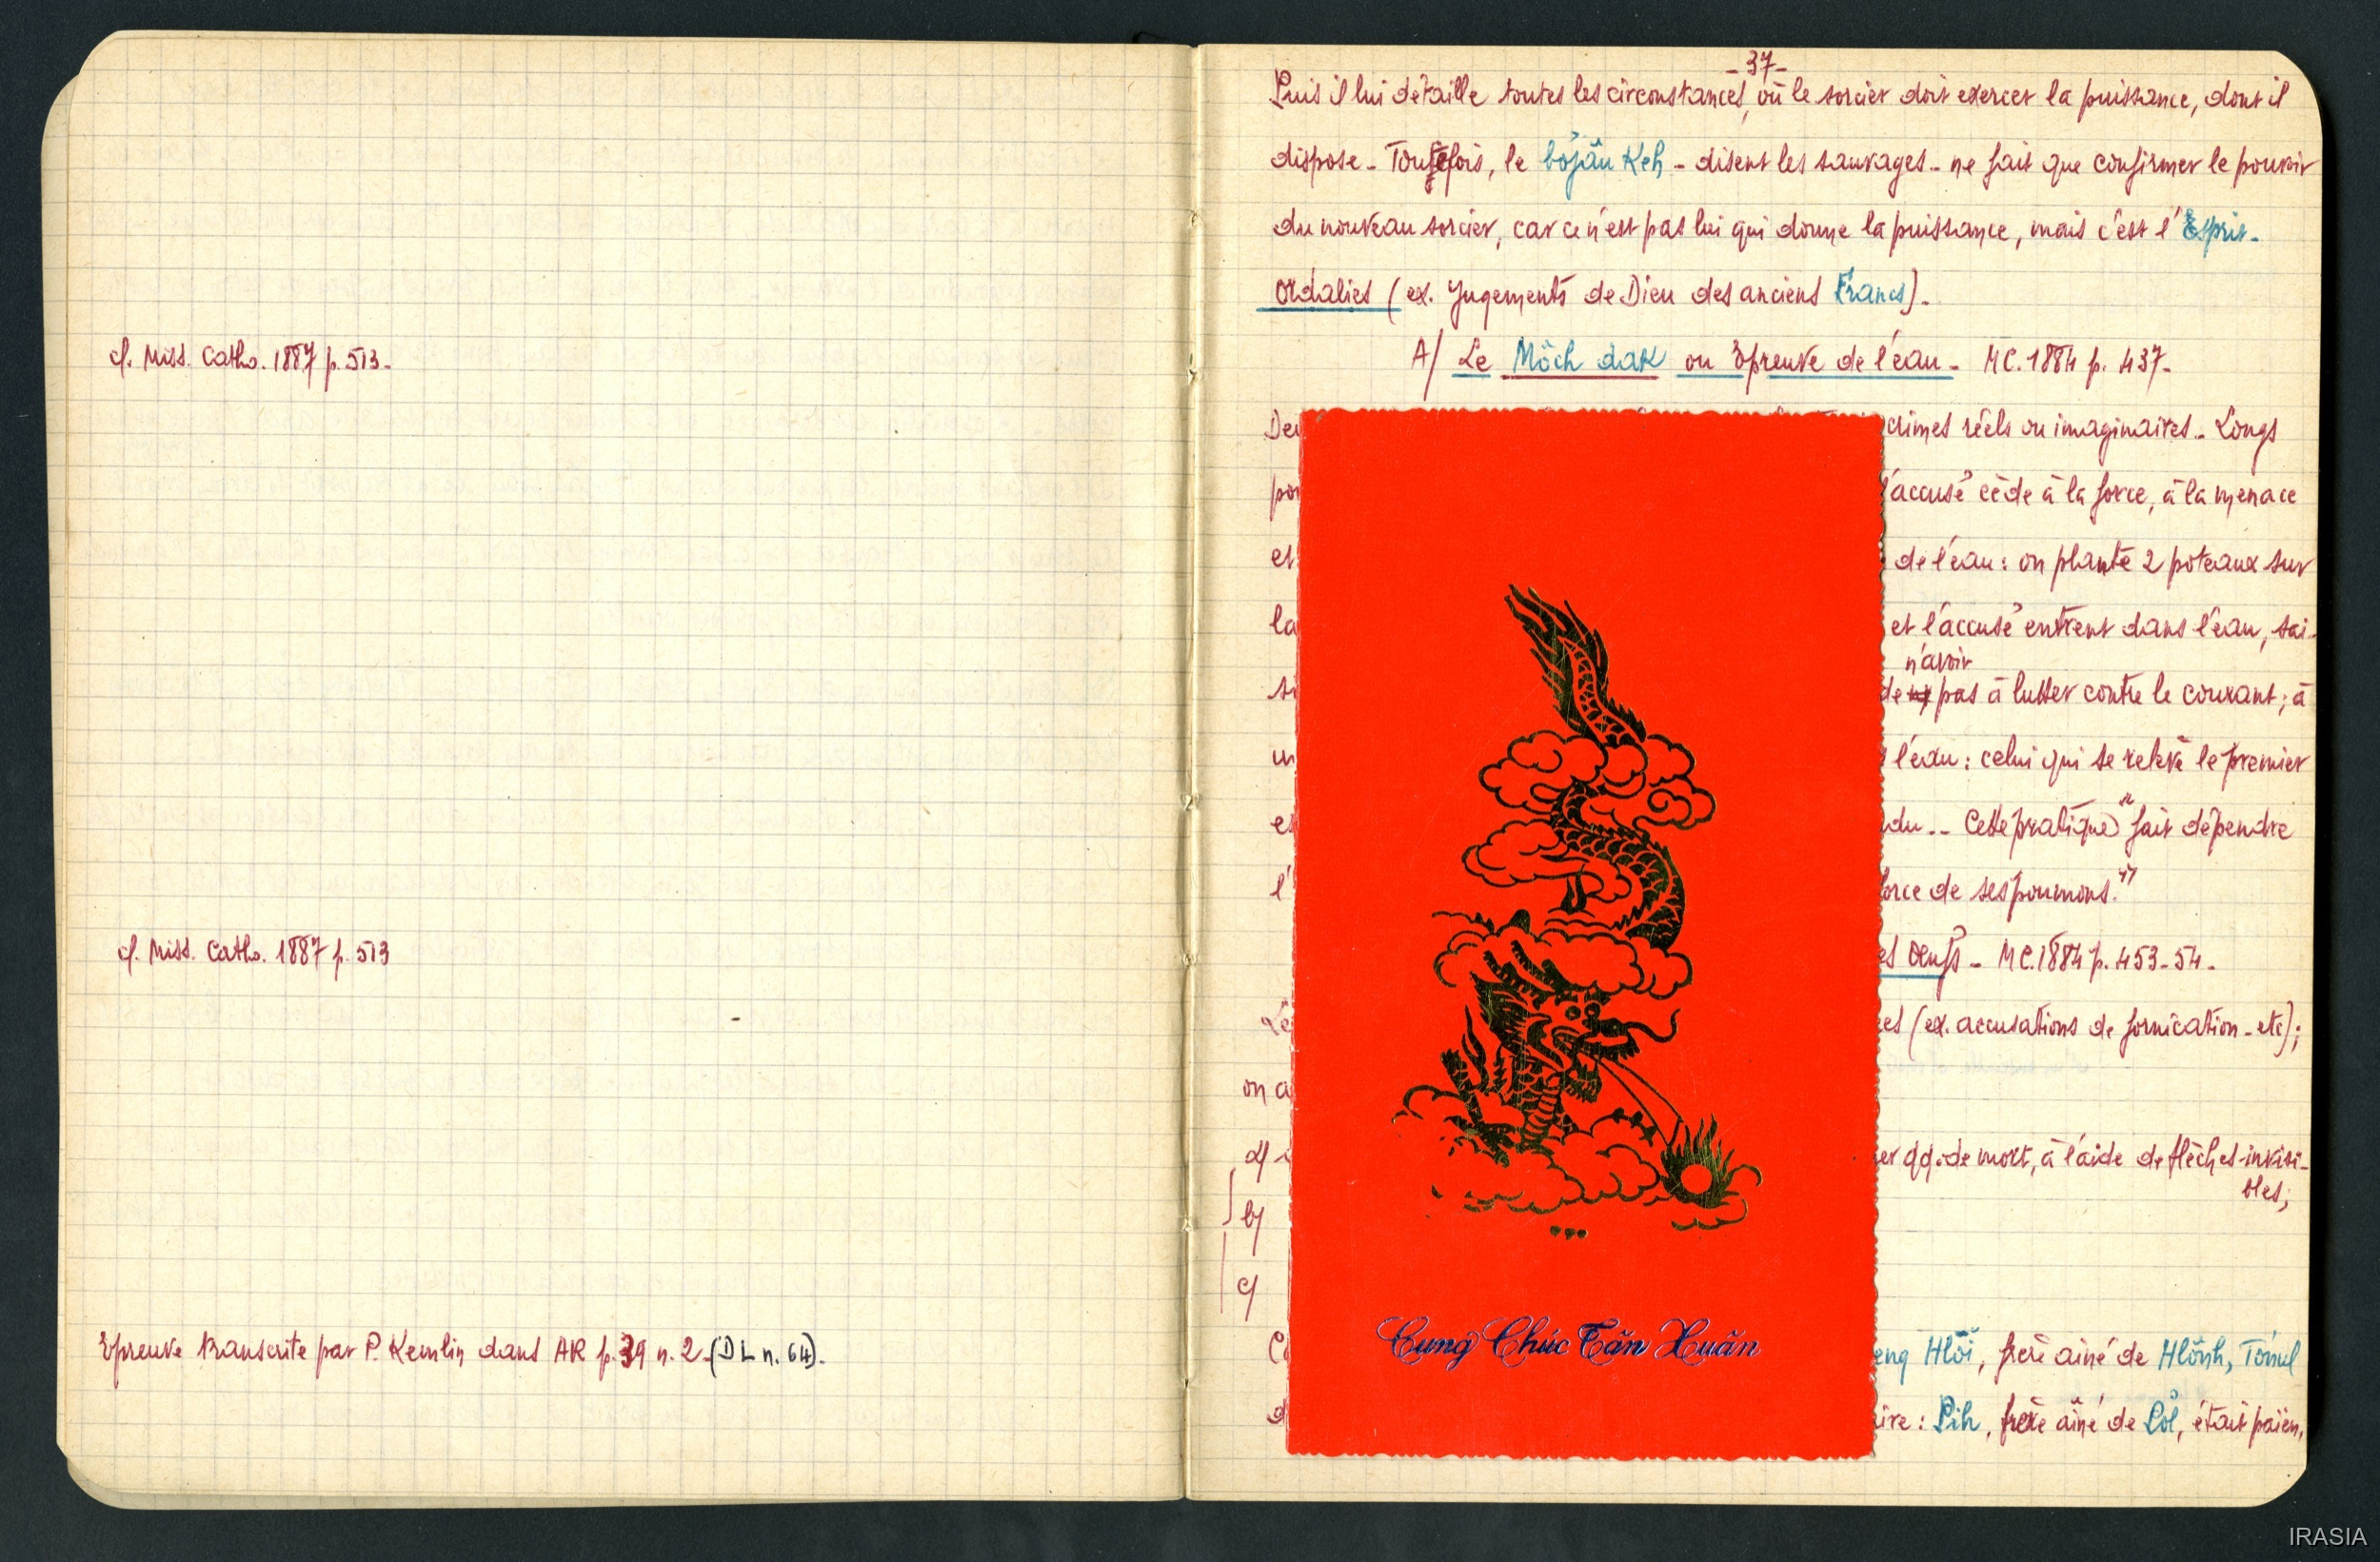 cf. Miss. Catho. 1887 p. 513.
cf. Miss. Catho. 1887 p. 513
Epreuve transcrite par P. Kemlin dans AR p. 39 n. 2 (DL n. 64).
- 37 -
Puis il lui détaille toutes les circonstances, où le sorcier doit exercer la puissance, dont il
dispose - Toutefois, le bơjâu Keh - disent les sauvages - ne fait que confirmer le pouvoir
du nouveau sorcier, car ce n'est pas lui qui donne la puissance, mais c'est l'Esprit -
Ordalies (ex. Jugements de Dieu des anciens Francs).
A/ Le Môch dak ou Epreuve de l'eau - MC. 1884 p. 437.
crimes réels ou imaginaires - Longs
l'accusé cède à la force, à la menace
et de l'eau : on plante 2 poteaux sur
la et l'accusé entrent dans l'eau, sai-
n'avoir
si de pas à lutter contre le courant ; à
l'eau : celui qui se relève le premier
du .. Cette pratique "fait dépendre
l' force de ses poumons."
es Œufs - MC. 1884 p. 453-54.
es (ex. accusations de fornication - etc) ;
on a
a/ er qq. de mort, à l'aide de flèches invisi-
bles ;
b/
c/
eng Hlŏi, frère aîné de Hlŏnh, Tơnul
d aire : Pih, frère aîné de Lơl, était païen,
Cung Chúc Tân Xuân
IRASIA